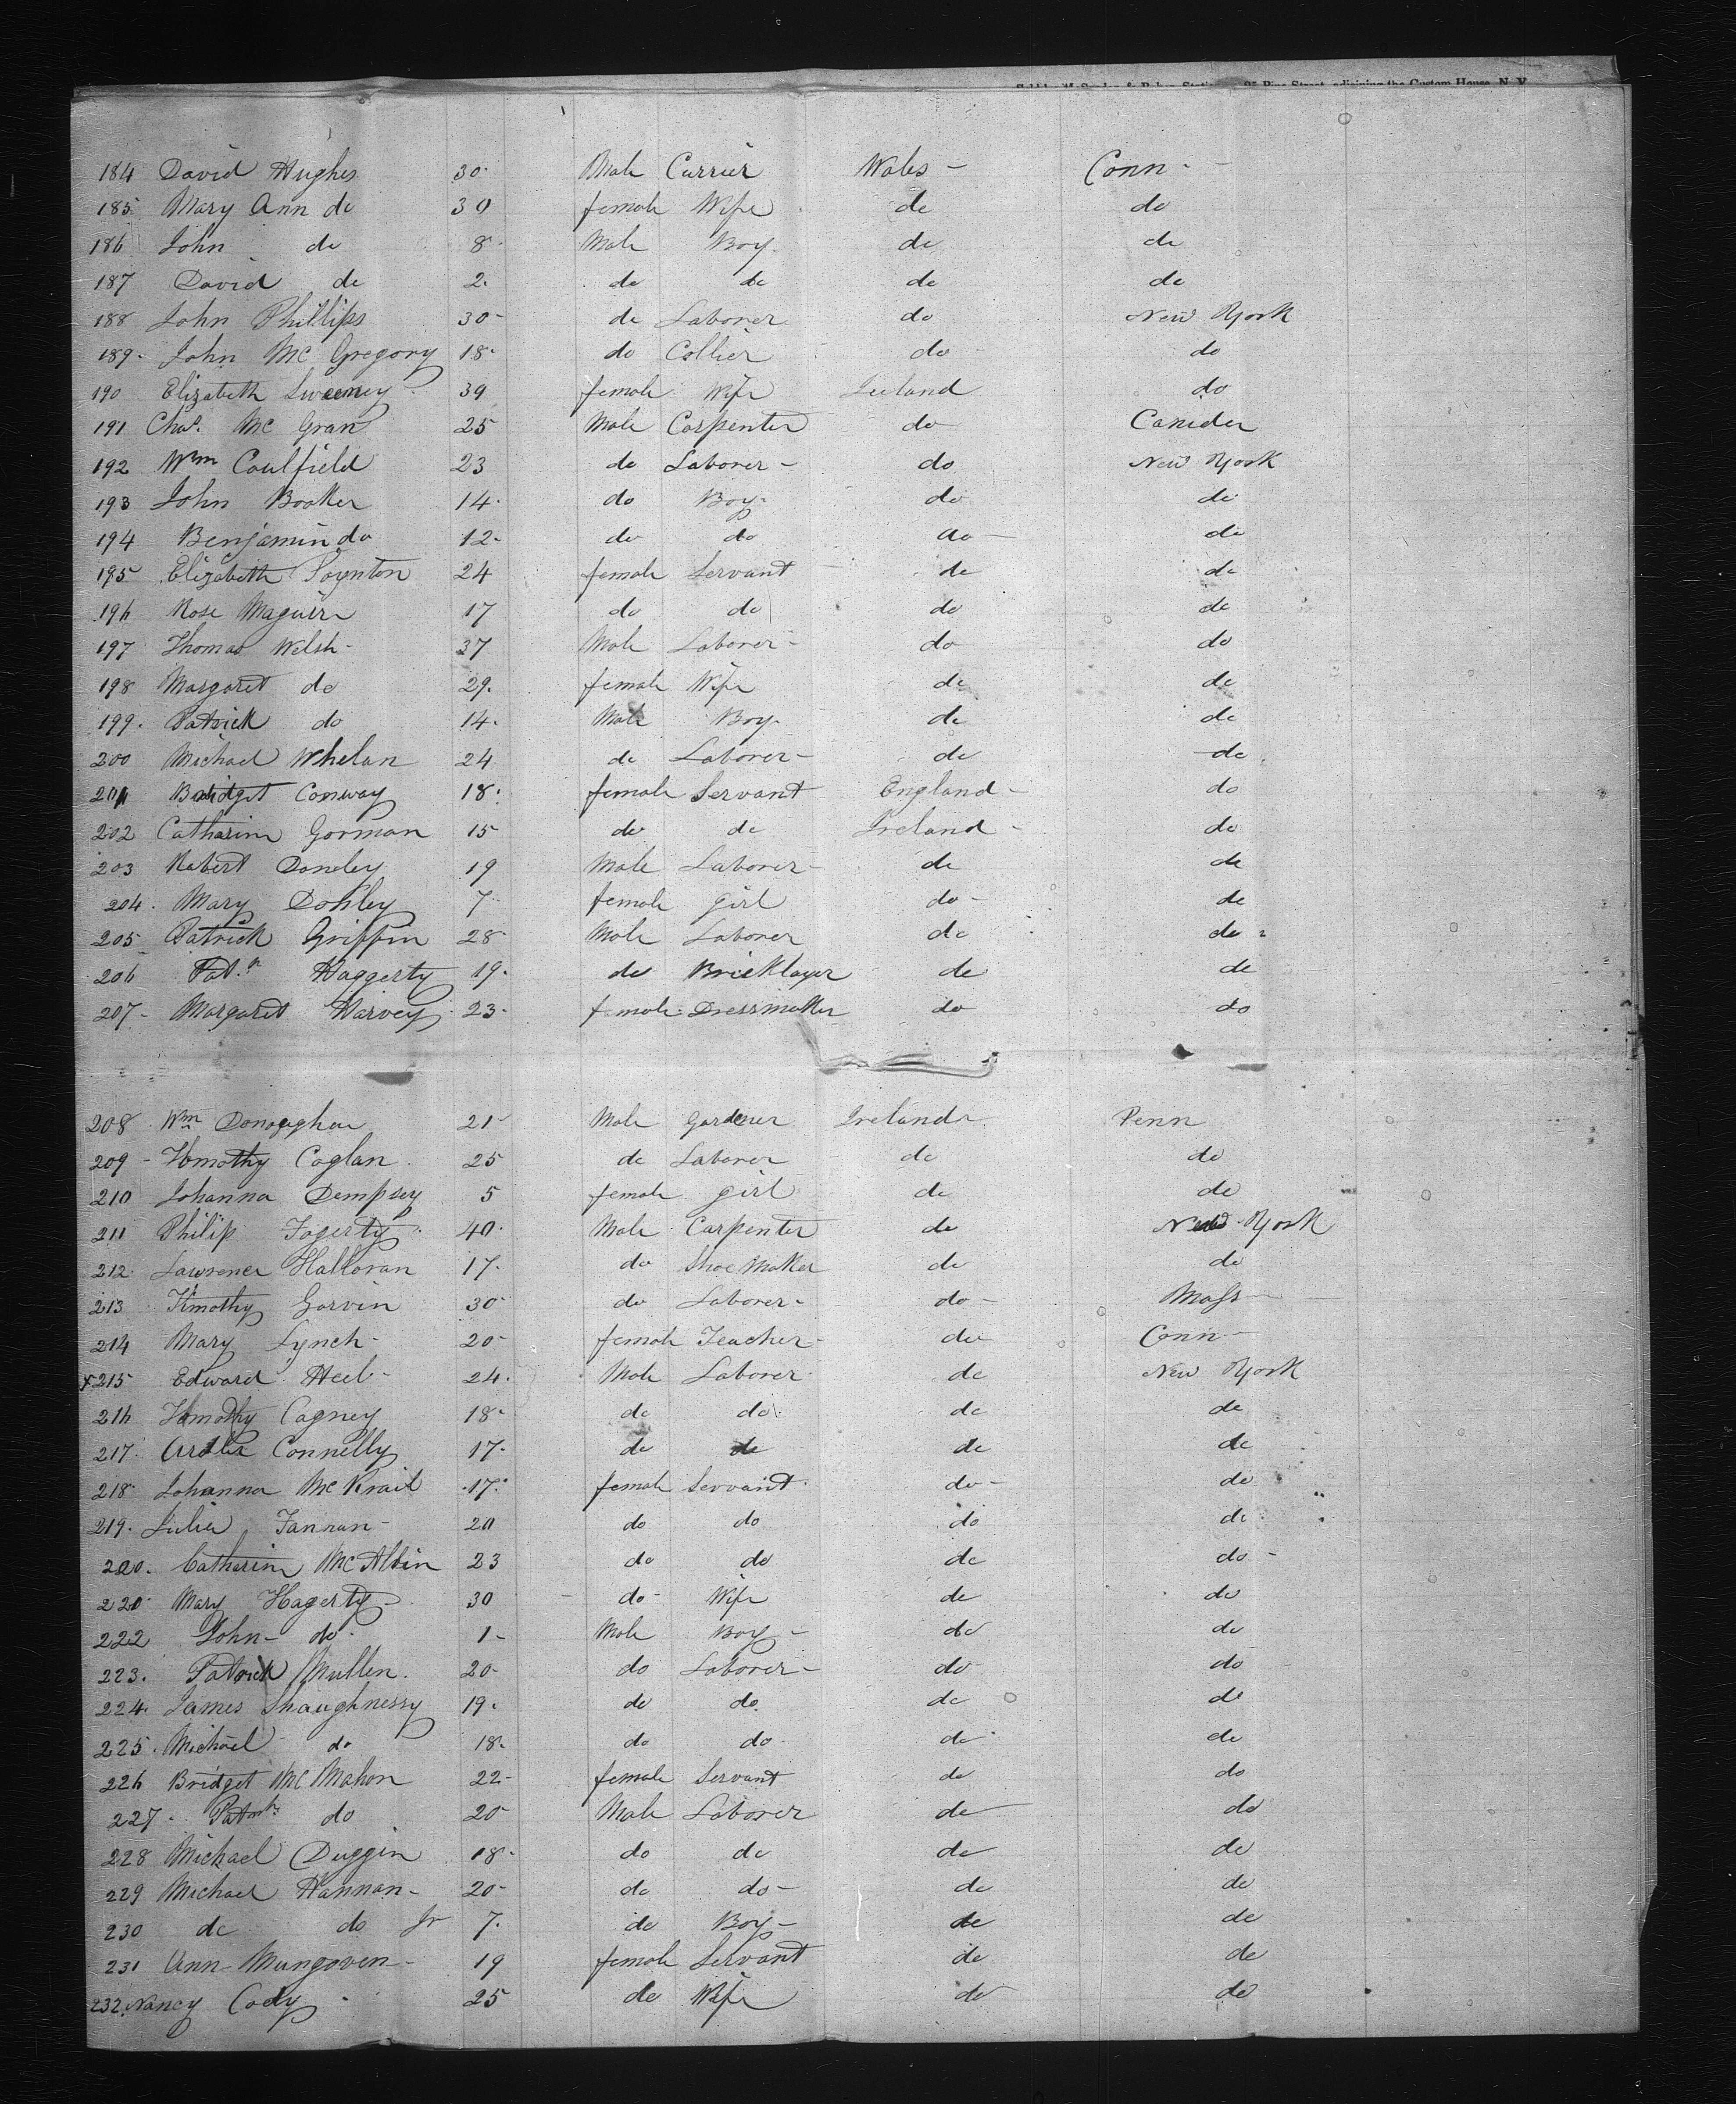 adjoining the Custom House, N. Y.
184 David Hughes 30 Male Currier Wales - Conn -
185 Mary Ann do 30 female Wife do do
186 John do 8 Male Boy do do
187 David do 2 do do do do
188 John Phillips 30 do Laborer do New York
189 John Mc Gregory 18 do Collier do do
190 Elizabeth Sweeney 39 female Wife Ireland do
191 Chas. Mc Gran 25 Male Carpenter do Canada
192 Wm Caulfield 23 do Laborer - do New York
193 John Booker 14 do Boy do do
194 Benjamin do 12 do do do do
195 Elizabeth Poynton 24 female Servant do do
196 Rose Maguire 17 do do do do
197 Thomas Welsh 37 Male Laborer do do
198 Margaret do 29 female Wife do do
199 Patrick do 14 Male Boy do do
200 Michael Whelan 24 do Laborer do do
201 Bridget Conway 18 female Servant England do
202 Catharine Gorman 15 do do Ireland do
203 Robert Donley 19 Male Laborer do do
204 Mary Donley 7 female girl do do
205 Patrick Griffin 28 Male Laborer do do
206 Patk Haggerty 19 do Bricklayer do do
207 Margaret Harvey 23 female Dressmaker do do
208 Wm Donaghue 21 Male Gardener Ireland Penn
209 Timothy Coglan 25 do Laborer do do
210 Johanna Dempsey 5 female girl do do
211 Philip Fogerty 40 Male Carpenter do New York
212 Lawrence Halloran 17 do Shoe Maker do do
213 Timothy Garvin 30 do Laborer do Mass
214 Mary Lynch 20 female Teacher do Conn
x215 Edward Heel 24 Male Laborer do New York
216 Timothy Cagney 18 do do do do
217 Connelly 17 do do do do
218 Johanna Mc 17 female Servant do do
219 Julia Fannan 20 do do do do
220 Catharine Mc Alpin 23 do do do do
220 Mary Hagerty 30 do Wife do do
222 John do 1 Male Boy do do
223 Patrick Mullen 20 do Laborer do do
224 James Shaughnessy 19 do do do do
225 Michael do 18 do do do do
226 Bridget Mc Mahon 22 female Servant do do
227 Patrick do 20 Male Laborer do do
228 Michael Duggin 18 do do do do
229 Michael Hannan 20 do do do do
230 do do Jr 7 do Boy do do
231 Ann Mungoven 19 female Servant do do
232 Nancy Cody 25 do Wife do do